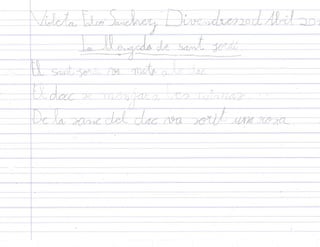 Violeta Sanchez Divendres 20 d'Abril 20
La lleyeda de sant jordi
El sant jordi va mata a le dac
El dac se menjava les
De la sanc del dac va sortí una rosa